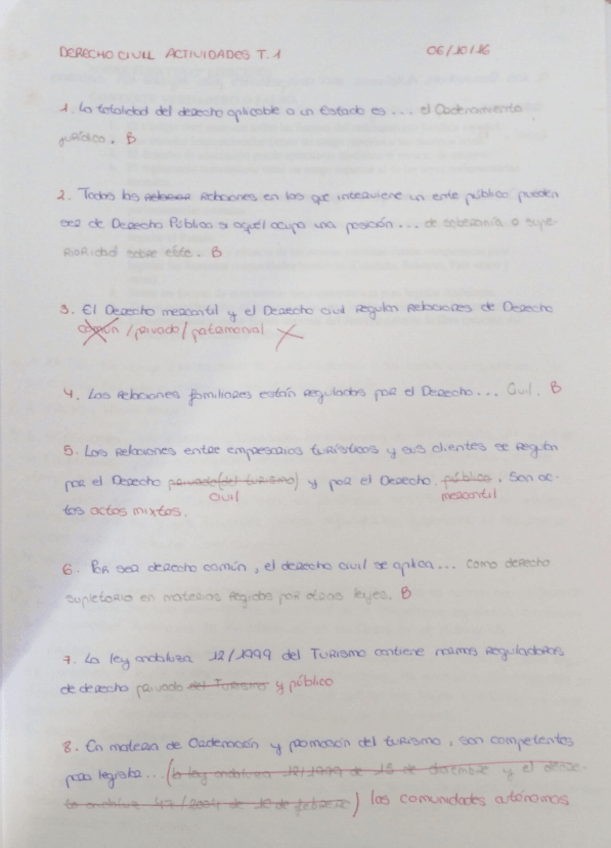 DERECHO CIVIL ACTIVIDADES T.1 06/10/16
1. La totalidad del derecho aplicable a un Estado es... el Ordenamiento
jurídico. B
2. Todas las relaciones en las que interviene un ente público pueden
ser de Derecho Público si aquél ocupa una posición... de soberanía o supe-
rioridad sobre éste. B
3. El Derecho mercantil y el Derecho civil regulan relaciones de Derecho
común / privado / patrimonial
4. Las relaciones familiares están reguladas por el Derecho... Civil. B
5. Las relaciones entre empresarios turísticos y sus clientes se regulan
por el Derecho privado (del turismo) y por el Derecho público. Son ac-
civil mercantil
tos actos mixtos.
6. Por ser derecho común, el derecho civil se aplica... como derecho
supletorio en materias regidas por otras leyes. B
7. La ley andaluza 12/1999 del Turismo contiene normas reguladoras
de derecho privado del Turismo y público
8. En materia de Ordenación y promoción del turismo, son competentes
para legislar... (la ley andaluza 12/1999 de 15 de diciembre y el decre-
to andaluz 47/2004 de 10 de febrero) las comunidades autónomas